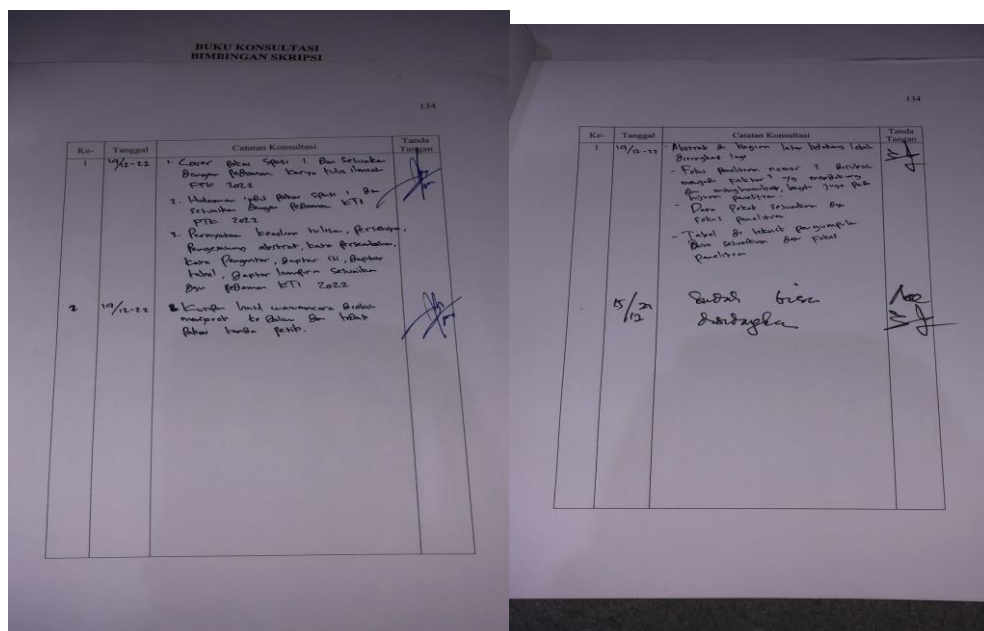 BUKU KONSULTASI
BIMBINGAN SKRIPSI
134
Ke- Tanggal Catatan Konsultasi Tanda Tangan
1 19/12-22 1. Cover pakai spasi 1 dan sesuaikan
dengan pedoman karya tulis ilmiah
FTK 2022
2. Halaman judul pakai spasi 1 dan
sesuaikan dengan pedoman KTI
FTK 2022
3. Pernyataan keaslian tulisan, persetujuan,
pengesahan, abstrak, kata persembahan,
kata pengantar, daftar isi, daftar
tabel, daftar lampiran sesuaikan
dgn pedoman KTI 2022
2 19/12-22 Kutipan hasil wawancara diolah
menjorok ke dalam dan tidak
pakai tanda petik.
134
Ke- Tanggal Catatan Konsultasi Tanda Tangan
1 19/12-22 - Abstrak & bagian latar belakang lebih
diringkas lagi
- Fokus penelitian nomor 2 dirubah
menjadi faktor² yg mendukung
dan menghambat, begitu juga pada
tujuan penelitian.
- Data Pokok sesuaikan dgn
fokus penelitian
- Tabel di teknik pengumpulan
data sesuaikan dgn fokus
penelitian
Sudah bisa